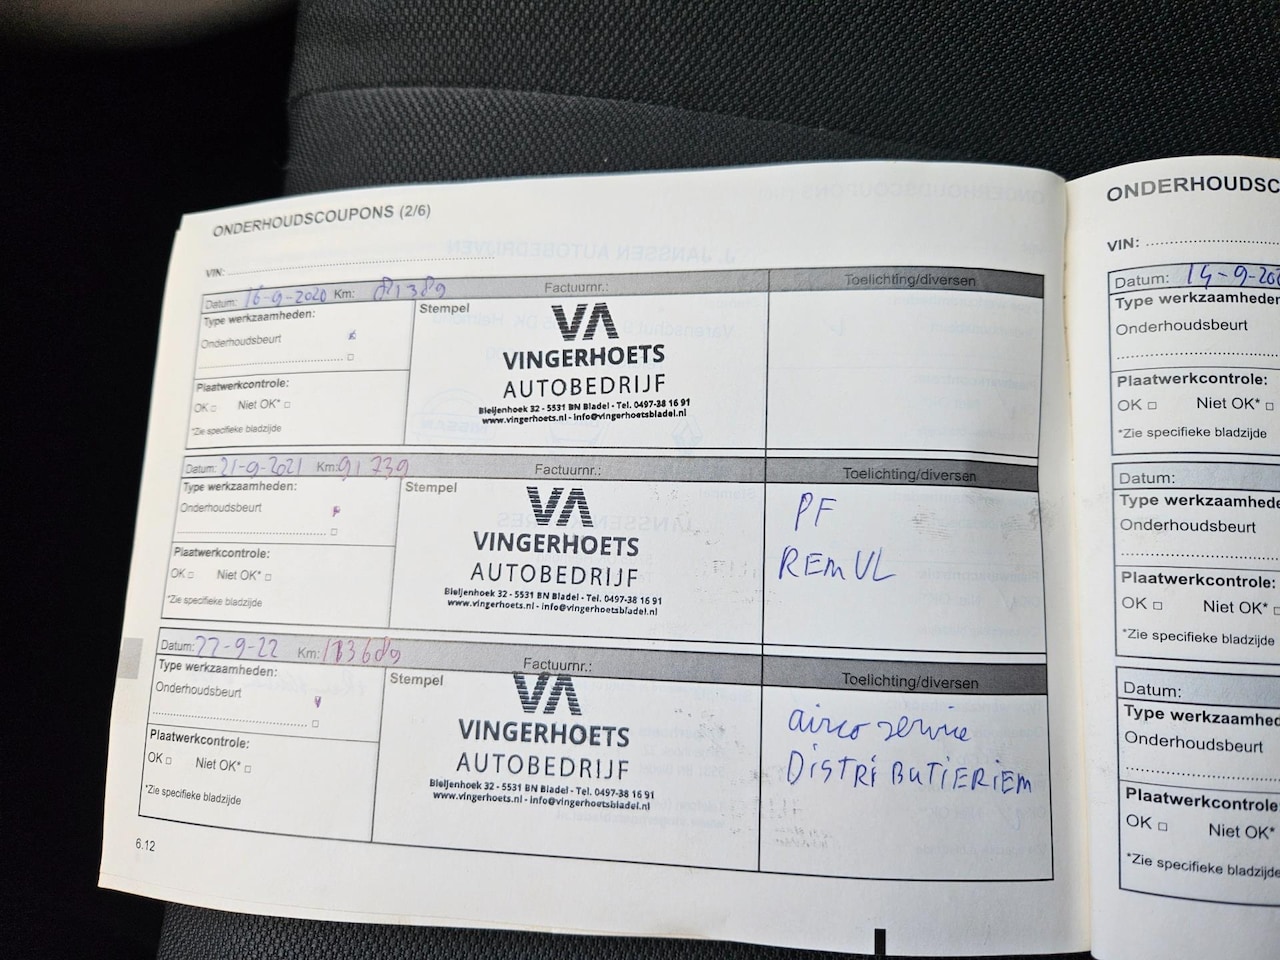 ONDERHOUDSCOUPONS (2/6)
VIN:
Datum: 16-9-2020 Km: 81389 Factuurnr.: Toelichting/diversen
Type werkzaamheden:
Onderhoudsbeurt
Plaatwerkcontrole:
OK □ Niet OK* □
*Zie specifieke bladzijde
Stempel
VA
VINGERHOETS
AUTOBEDRIJF
Bleijenhoek 32 - 5531 BN Bladel - Tel. 0497-38 16 91
www.vingerhoets.nl - info@vingerhoetsbladel.nl
Datum: 21-9-2021 Km: 91739 Factuurnr.: Toelichting/diversen
Type werkzaamheden:
Onderhoudsbeurt
Plaatwerkcontrole:
OK □ Niet OK* □
*Zie specifieke bladzijde
Stempel
VA
VINGERHOETS
AUTOBEDRIJF
Bleijenhoek 32 - 5531 BN Bladel - Tel. 0497-38 16 91
www.vingerhoets.nl - info@vingerhoetsbladel.nl
PF
REM VL
Datum: 22-9-22 Km: Factuurnr.: Toelichting/diversen
Type werkzaamheden:
Onderhoudsbeurt
Plaatwerkcontrole:
OK □ Niet OK* □
*Zie specifieke bladzijde
Stempel
VA
VINGERHOETS
AUTOBEDRIJF
Bleijenhoek 32 - 5531 BN Bladel - Tel. 0497-38 16 91
www.vingerhoets.nl - info@vingerhoetsbladel.nl
airco service
DISTRIBUTIERIEM
6.12
ONDERHOUDSC
VIN:
Datum: 14-9-20
Type werkzaamheden
Onderhoudsbeurt
Plaatwerkcontrole:
OK □ Niet OK* □
*Zie specifieke bladzijde
Datum:
Type werkzaamhede
Onderhoudsbeurt
Plaatwerkcontrole:
OK □ Niet OK* □
*Zie specifieke bladzijde
Datum:
Type werkzaamhed
Onderhoudsbeurt
Plaatwerkcontrole
OK □ Niet OK*
*Zie specifieke bladzijde